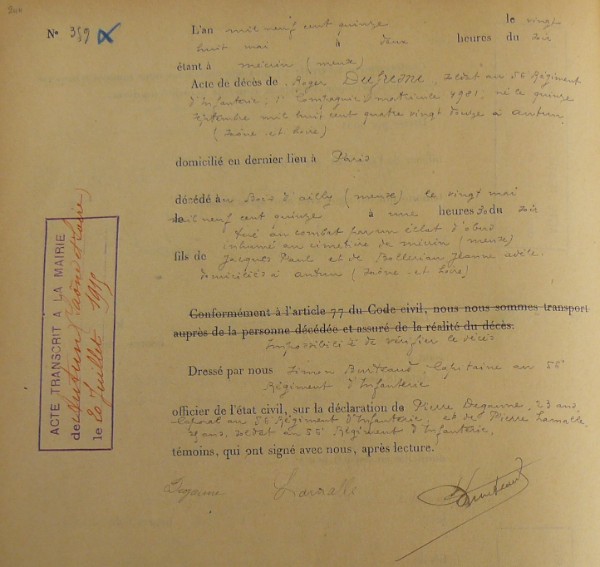 N° 389
L'an mil neuf cent quinze le vingt
huit mai à deux heures du soir
étant à mécrin (meuse)
Acte de décès de Roger Dufresne, soldat au 56 Régiment
d'Infanterie, Compagnie, matricule 4981, né le quinze
septembre mil huit cent quatre vingt douze à autun
(Saône et Loire)
domicilié en dernier lieu à Paris
décédé au Bois d'ailly (meuse), le vingt mai
mil neuf cent quinze à une heures du soir
tué au combat par un éclat d'obus
inhumé au cimetière de mécrin (meuse)
fils de Jacques Paul et de Jeanne adèle
domiciliés à autun (Saône et Loire)
Conformément à l'article 77 du Code civil, nous nous sommes transport
auprès de la personne décédée et assuré de la réalité du décès.
Impossibilité de vérifier le décès
Dressé par nous Simon Capitaine au 56
Régiment d'Infanterie
officier de l'état civil, sur la déclaration de Pierre Deganne, 23 ans,
caporal au 56 Régiment d'Infanterie, et de Pierre
ans, soldat au 56 Régiment d'Infanterie,
témoins, qui ont signé avec nous, après lecture.
Deganne
ACTE TRANSCRIT A LA MAIRIE
de Autun (Saône et Loire)
le 20 Juillet 1919